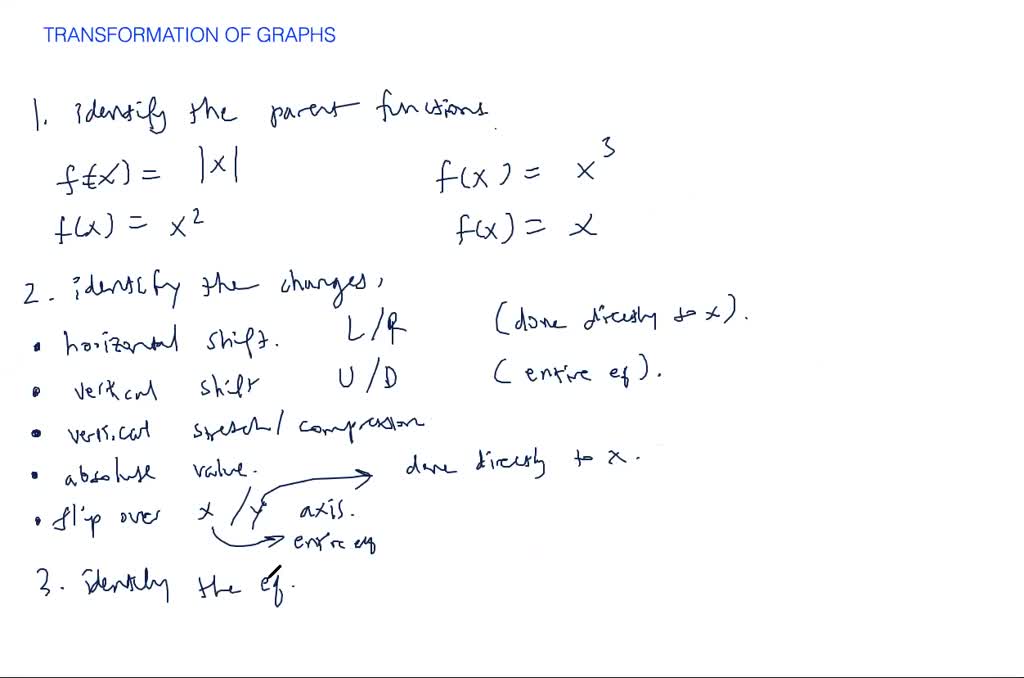 TRANSFORMATION OF GRAPHS
1. identify the parent functions.
f(x) = |x|
f(x) = x³
f(x) = x²
f(x) = x
2. identify the changes,
• horizontal shift. L/R (done directly to x).
• vertical shift U/D (entire eq).
• vertical stretch/compression
• absolute value.
done directly to x.
• flip over x/y axis.
entire eq
3. identify the eq.